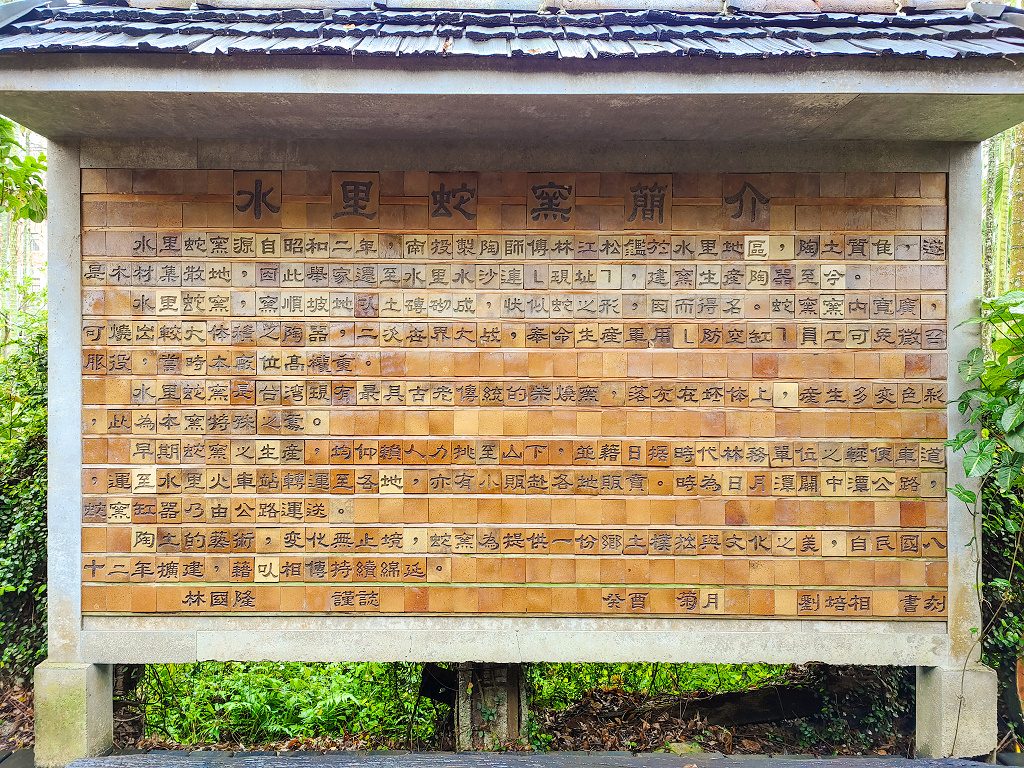 水里蛇窯簡介
水里蛇窯源自昭和二年，南投製陶師傅林江松鑑於水里地區，陶土質佳，遂
是木材集散地，因此舉家遷至水里水沙連﹂現址﹁，建窯生産陶器至今。
水里蛇窯，窯順坡地以土磚砌成，狀似蛇之形，因而得名。蛇窯窯內寬廣，
可燒出較大体積之陶器，二次世界大战，奉命生産軍用﹂防空缸﹁員工可免徵召
服役，當時本廠位髙權重。
水里蛇窯是台湾現有最具古老傳統的柴燒窯，落灰在坯体上，産生多变色彩
，此為本窯特殊之處。
早期蛇窯之生産，均仰賴人力挑至山下，並藉日据時代林務單位之輕便車道
，運至水里火車站轉運至各地，亦有小販赴各地販賣。時為日月潭闢中潭公路，
蛇窯缸器乃由公路運送。
陶生的藝術，变化無止境，蛇窯為提供一份鄉土樸拙與文化之美，自民國八
十二年擴建，藉以相傳持續綿延。
林國隆 謹誌 癸酉 菊月 劉培相 書刻